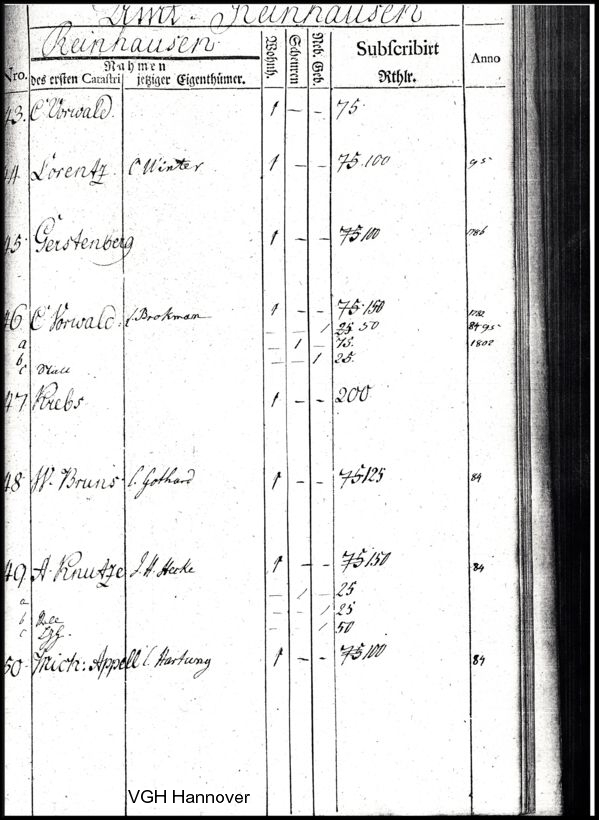 Amt Reinhausen
Reinhausen
Nro. Nahmen des ersten Catastri jetziger Eigenthümer. Wohnh. Scheuren Neb. Geb. Subscribirt Rthlr. Anno
43. C Vorwald. 1 – – 75
44 Lorentz C Winter 1 – – 75 100 95
45 Gerstenberg 1 – – 75 100 1786
46 C Vorwald. C. Brokman 1 – – 75 150 1782
– – 1 25 50 84 95
a – 1 – 75. 1802
b – – 1 25.
c Stall
47 Krebs 1 – – 200
48 W. Bruns C. Gothard 1 – – 75 125 84
49 A. Knutze J. H. Hecke 1 – – 75 150 84
a – 1 – 25
b – – 1 25
c – – 1 50
50 Mich: Appell C. Hartung 1 – – 75 100 84
VGH Hannover